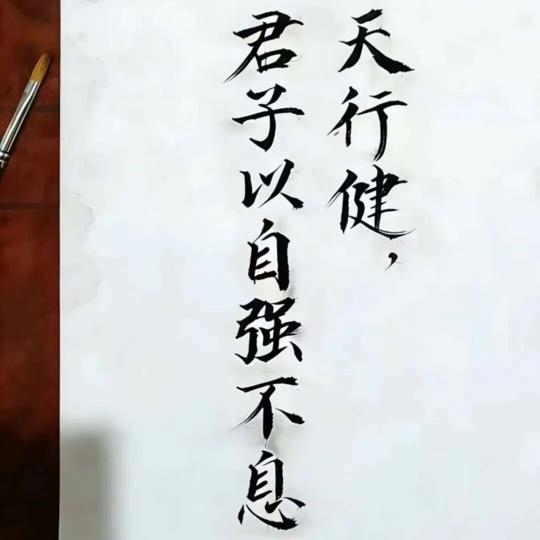 天行健，
君子以自强不息